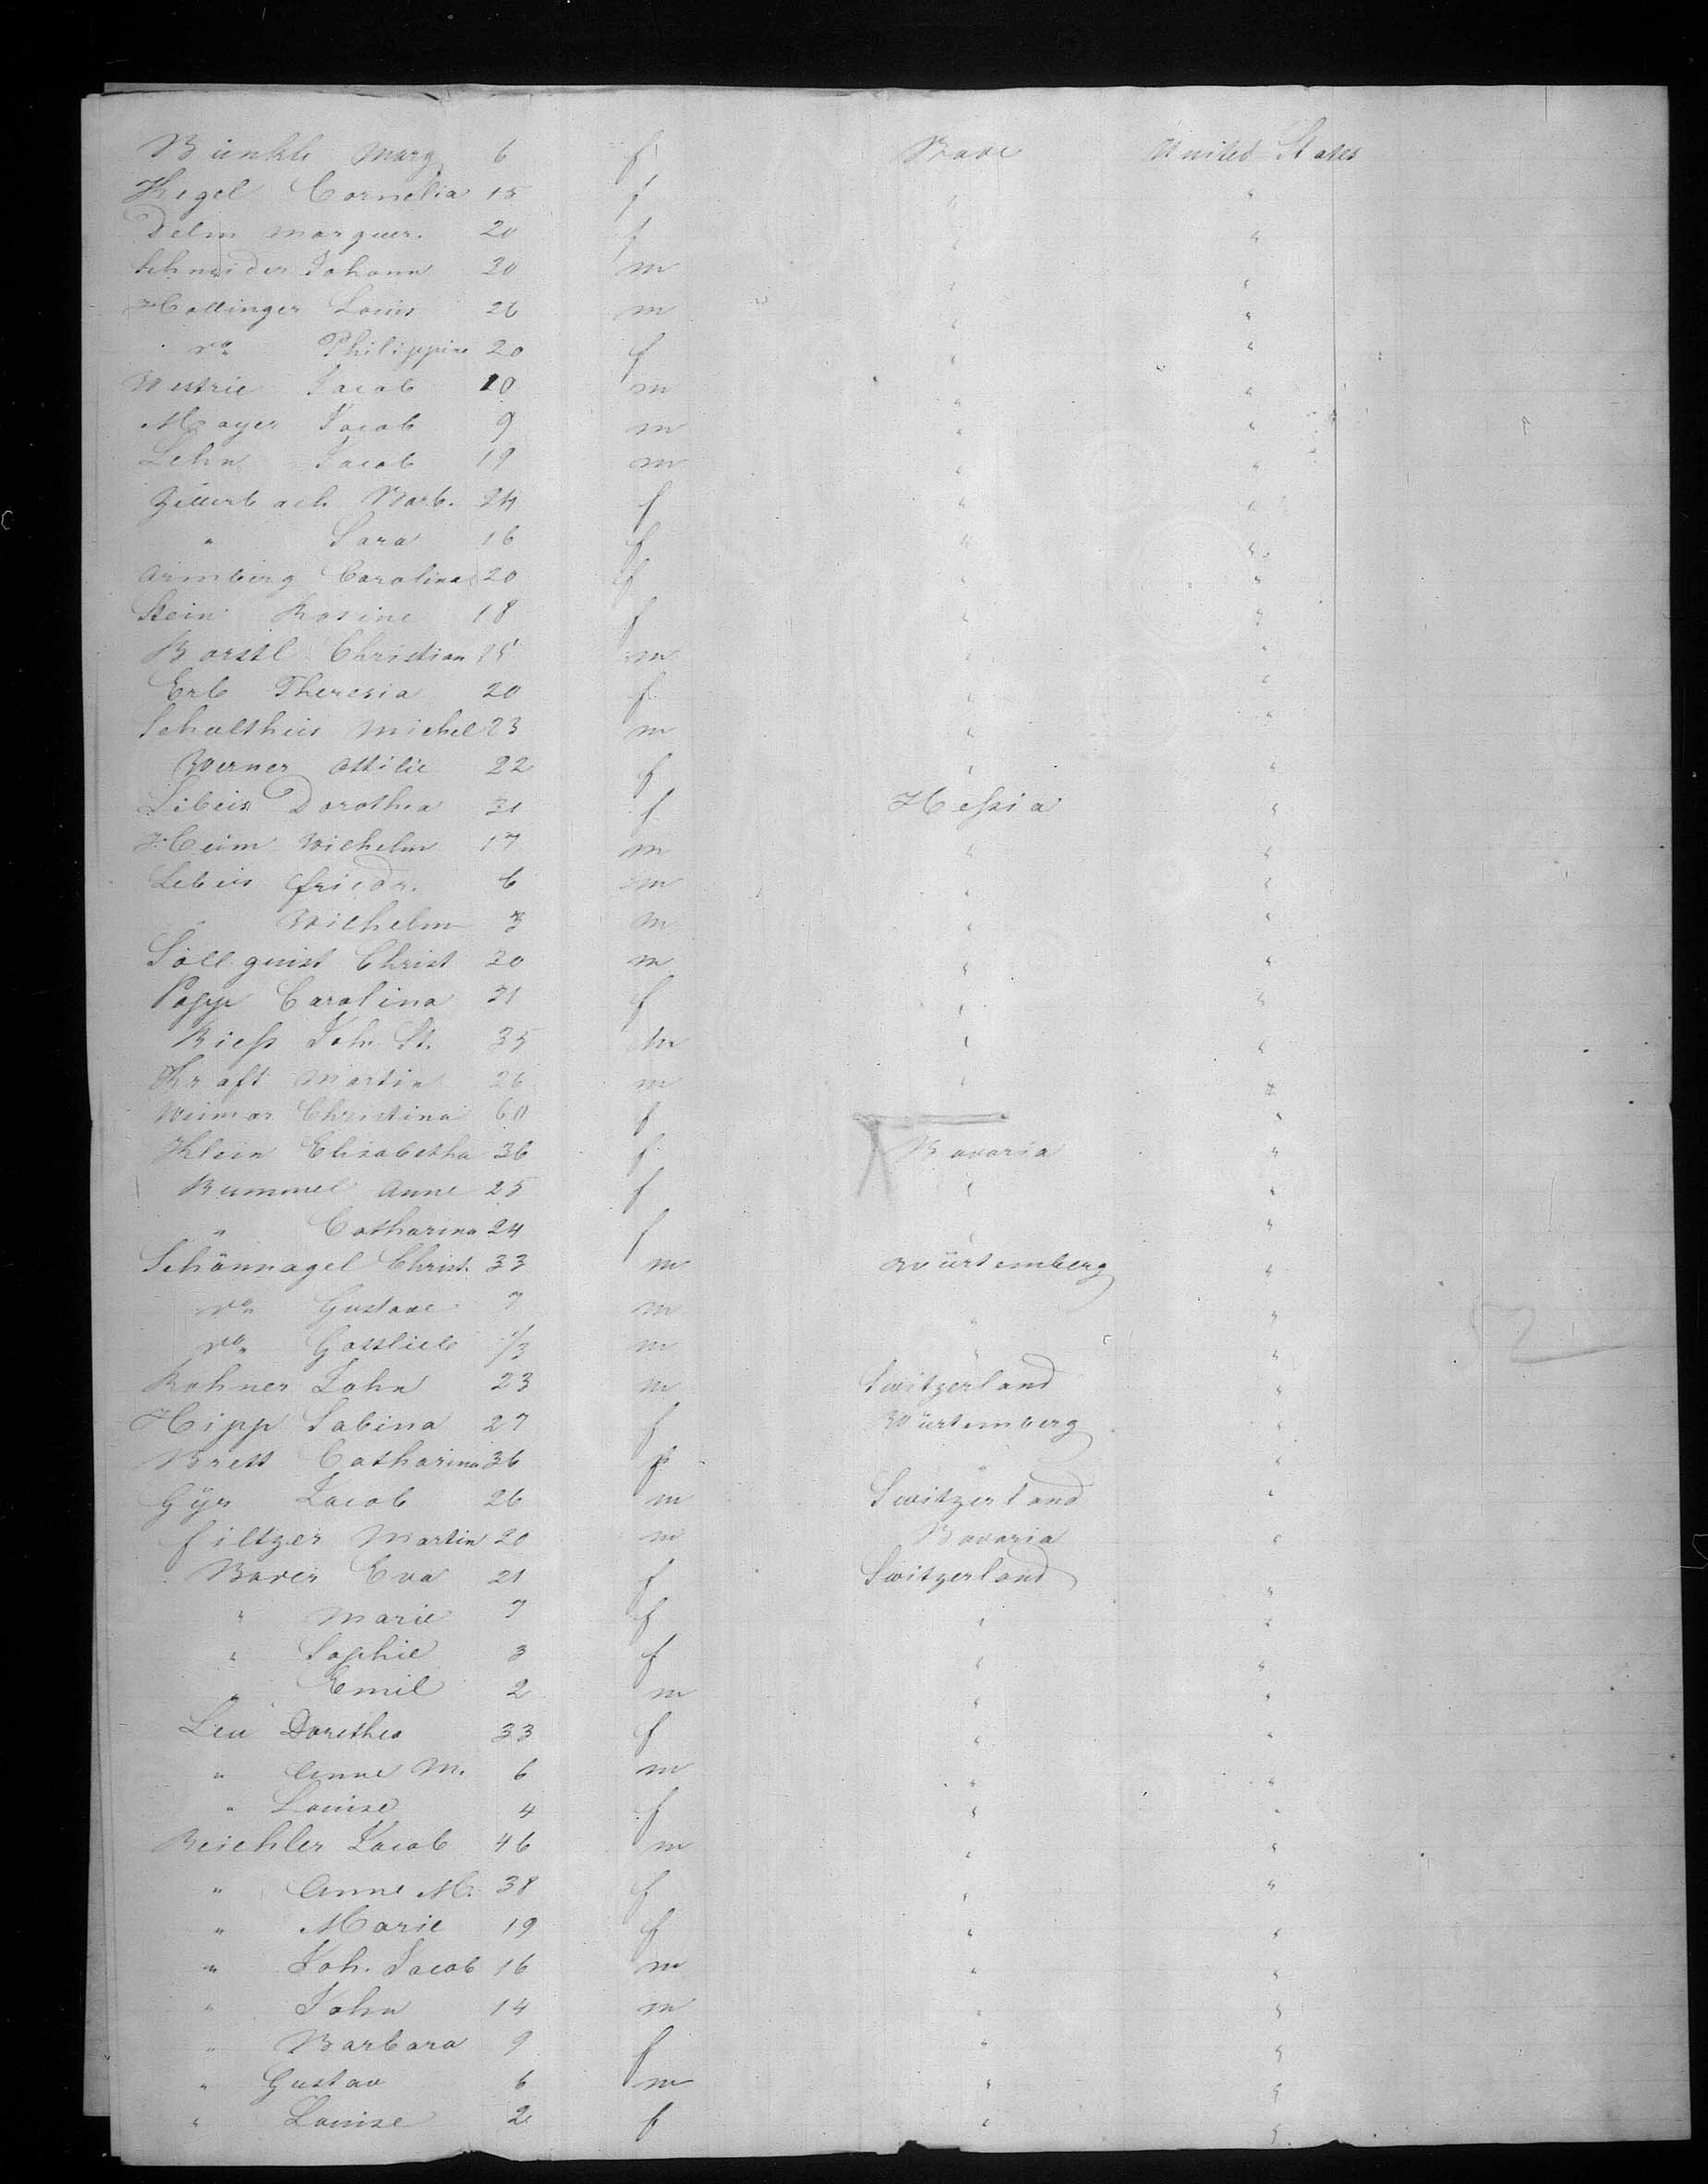 Bünkle Marg 6 f Bade United States
Kegel Cornelia 15 f " "
Delm Marguer. 20 f " "
Schneider Johann 30 m " "
Hollinger Louis 26 m " "
do Philippine 20 f " "
Westrie Jacob 10 m " "
Mayer Jacob 9 m " "
Lehn Jacob 19 m " "
Zillerbach Barb. 24 f " "
" Sara 16 f " "
Armberg Carolina 20 f " "
Stein Rosine 18 f " "
Borstl Christian m " "
Erb Theresia 20 f " "
Schultheis Michel 23 m " "
Werner Ottilie 22 f " "
Libeis Dorothea 31 f Hessia "
Heim Wilhelm 17 m " "
Lebeis Friedr. 6 m " "
" Wilhelm 3 m " "
Söllquist Christ 30 m " "
Popp Carolina 21 f " "
Riess Joh. St. 35 m " "
Kraft Martin 26 m " "
Weimar Christina 60 f "
Klein Elisabetha 36 f Bavaria "
Rummel Anne 25 f " "
" Catharina 24 f " "
Schönnagel Christ. 33 m Würtemberg "
do Gustave 7 m " "
do Gottlieb 1/3 m " "
Rohner John 23 m Switzerland "
Hipp Sabina 27 f Würtemberg "
Brett Catharina 36 f " "
Gÿr Jacob 26 m Switzerland "
Filtzer Martin 20 m Bavaria "
Baver Eva 21 f Switzerland "
" Marie 7 f " "
" Sophie 3 f " "
" Emil 2 m " "
Leu Dorethea 33 f " "
" Anne M. 6 m " "
" Louise 4 f " "
Beichler Jacob 46 m " "
" Anne M. 38 f " "
" Marie 19 f " "
" Joh. Jacob 16 m " "
" John 14 m " "
" Barbara 9 f " "
" Gustav 6 m " "
" Louise 2 f " "